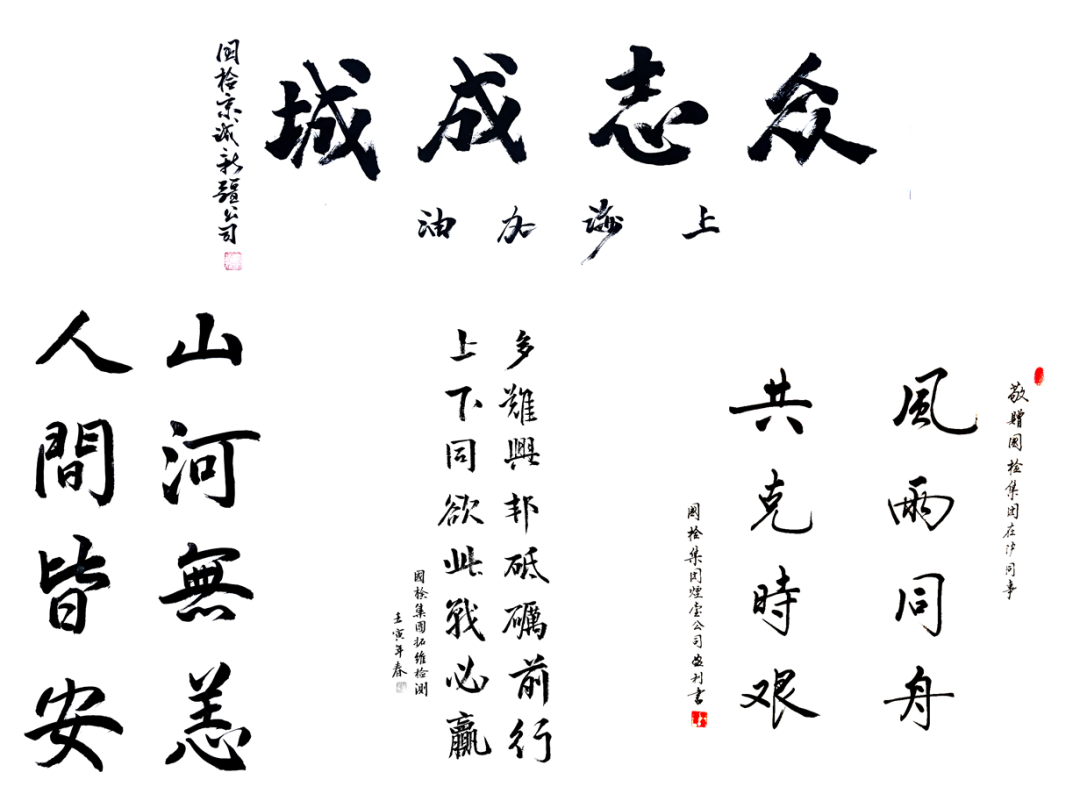 众志成城
上海加油
国检京诚新疆公司
敬赠國检集团在沪同事
風雨同舟
共克時艰
國检集团烟台公司盛利书
多難興邦砥礪前行
上下同欲此戰必贏
國检集團拓维检測
壬寅年春
山河無恙
人間皆安